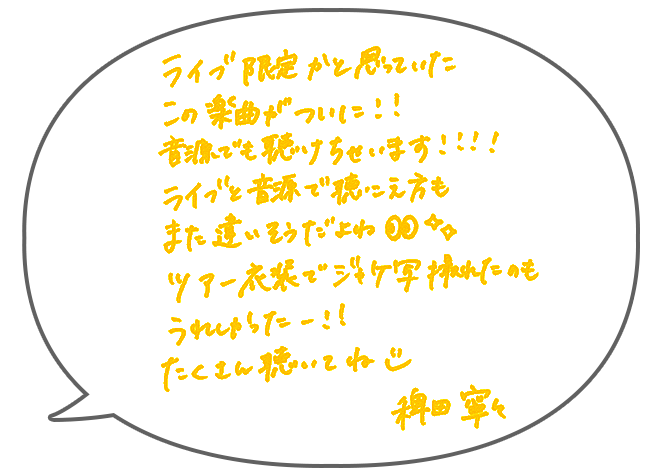 ライブ限定かと思っていた
この楽曲がついに!!
音源でも聴けちゃいます!!!!
ライブと音源で聴こえ方も
また違いそうだよね👀✨
ツアー衣装でジャケ写撮れたのも
うれしかったー!!
たくさん聴いてね
稗田寧々